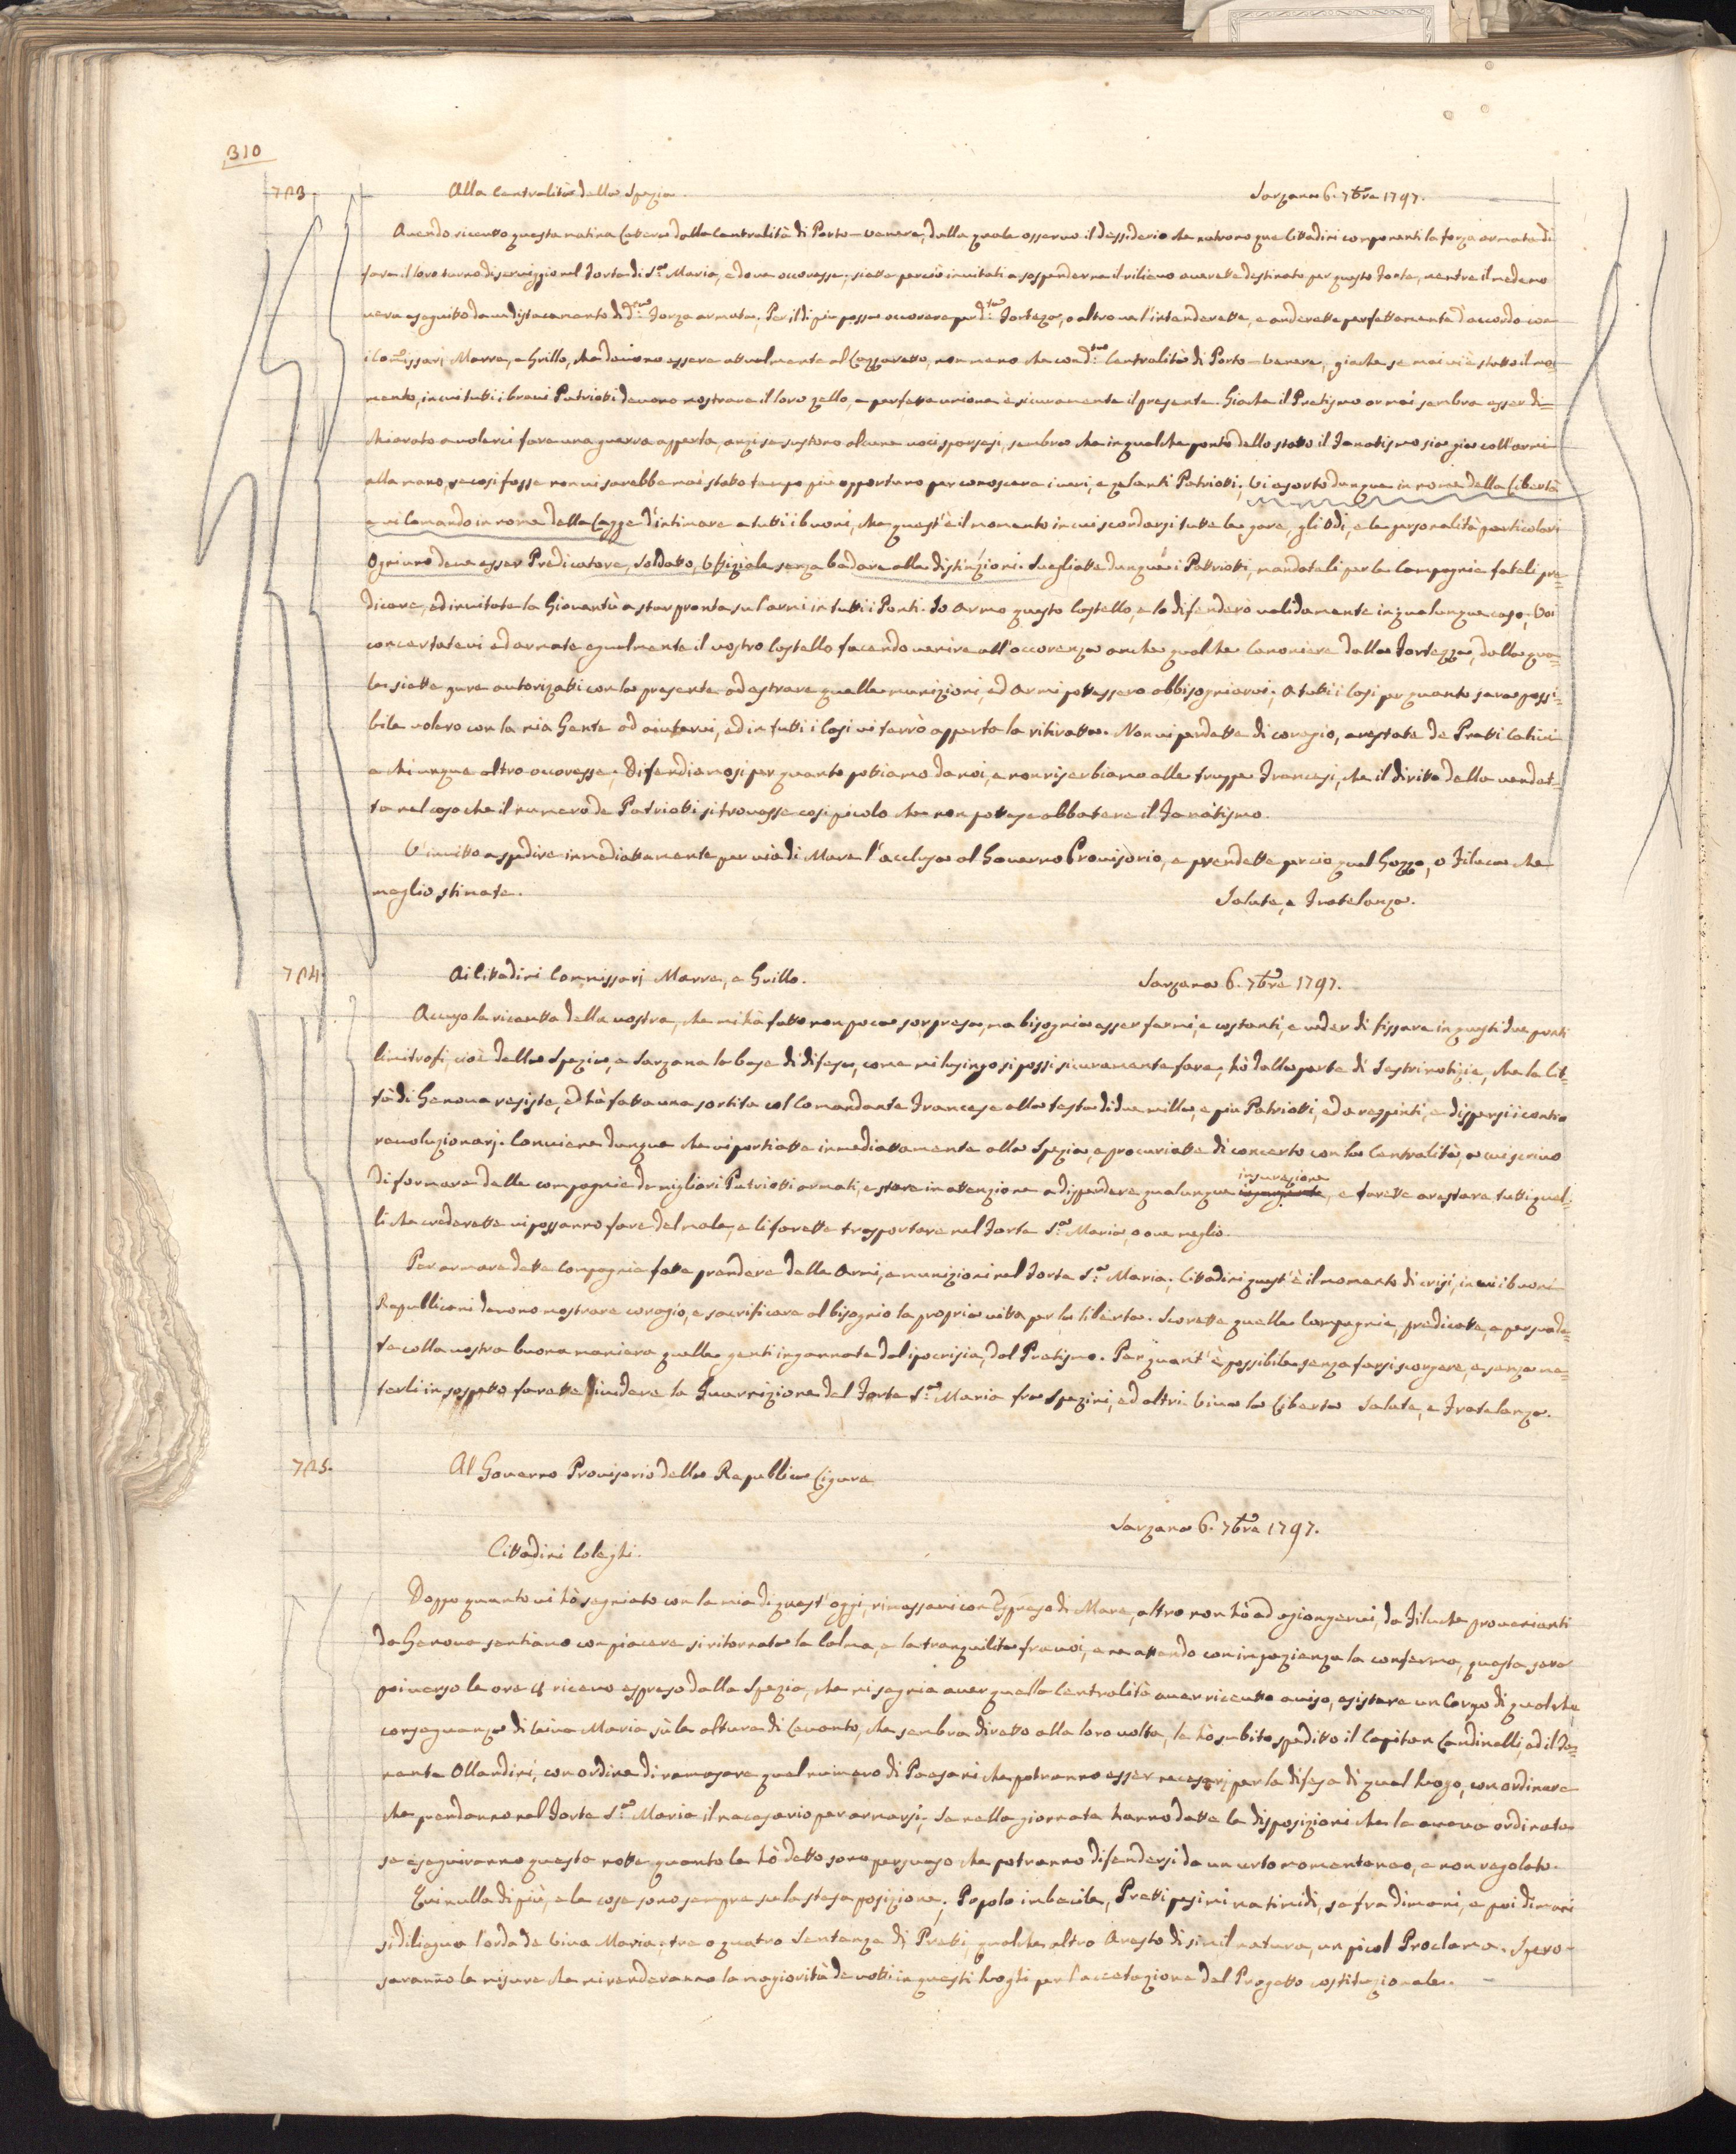 310
713. Alla Centralità della Spezia. Sarzana 6. 7bre 1797.
Avendo riceuto questa matina lettera dalla Centralità di Porto-venere, dalla quale osservo il dessiderio che nutrono que Cittadini componenti la forza armata di
fare il loro turno di serviggio nel Forte di S.ta Maria, e dove occoresse; siette perciò invitati a sospenderne il rilievo avereste destinato per questo Forte, mentre il medemo
verà eseguitto da un distacamento di d.ta Forza armata. Per il di più possa occorere per d.ta Fortezza, o altro ve l'intenderette, e anderette perfettamente d'accordo con
i Comissarj Marre, e Grillo, che devono essere attualmente al Lazzaretto, non meno che con d.ta Centralità di Porto-Venere, giache se mai vi è stato il mo=
mento, in cui tutti i bravi Patriotti devono mostrare il loro zello, e perfetta unione è sicuramente il presente. Giache il Pretismo ormai sembra esser di=
chiarato a volerci fare una guerra apperta, anzi se sustono alcune voci sparsesi, sembra che in qualche ponto dello stato il Fanatismo sia già coll'armi
alla mano, se cosi fosse non vi sarebbe mai stato tempo più opportuno per conoscere i veri, e zelanti Patriotti; Vi esorto dunque in nome della Libertà
e vi Comando in nome della Legge d'intimare a tutti i buoni, che quest'è il momento in cui scordarsi tutte le gare, gli odi, e le personalità particolari
Ogniuno deve esser Predicatore, Soldatto, Uffiziale senza badare alle distinzioni. Svegliatte dunque i Pattriotti, mandateli per le Campagnie fateli pre=
dicare, ed invitate la Gioventù a star pronta su l'armi in tutti i Ponti. Io armo questo Castello, e lo difenderò validamente in qualunque caso; Voi
concertatevi ed armate egualmente il vostro Castello facendo venire all'occorenza anche qualche Canoniere dalla Fortezza, dalla qua=
le siette pure autorizatti con la presente ad estrare quelle munizioni, ed armi potessero abbisogniarvi; A tutti i Casi per quanto sara possi=
bile volero con la mia Gente ad aiutarvi, ed in tutti i Casi vi terrò apperta la ritiratta. Non vi perdette di coragio, arestate de Pretti Cativi
e chiunque altro occoresse. Difendiamosi per quanto pottiamo da noi, e non riserbiamo alle truppe Francesi, che il diritto della vendet=
ta nel caso che il numero de Patriotti si trovasse cosi picolo che non potesse abbatere il Fanatismo.
V'invitto a spedire immediattamente per via di Mare l'acclusa al Governo Provisorio, e prendette perciò quel Gozzo, o Filuca che
meglio stimate. Salute, e Fratelanza.
714. Ai Cittadini Commissarj Marre, e Grillo. Sarzana 6. 7bre 1797.
Accuso la riceutta della vostra, che mi hà fatto non poca sorpresa, ma bisognia esser fermi, e costanti, e veder di fissare in questi due punti
limitrofi, cioè della Spezia, e Sarzana la base di difesa, come mi lusingo si possi sicuramente fare; hò dalla parte di Sestri notizie, che la Cit=
tà di Genova resiste, ed hà fatta una sortita col Comandante Francese alla testa di due milla, e più Patriotti, ed a respinti, e dispersi i contro
revoluzionarj. Conviene dunque che vi portiatte immediattamente alla Spezia, e procuriatte di concerto con la Centralità, a cui scrivo
di formare delle compagnie de migliori Patriotti armati, e stare in attenzione a disperdere qualunque insurezione, e farette arestare tutti quel=
li che crederette vi possanno fare del male, e li farette trasportare nel Forte S.ta Maria, o ove meglio.
Per armare dette Compagnie fatte prendere delle Armi, e munizioni nel Forte S.ta Maria. Cittadini quest'è il momento di crisi, in cui i buoni
Republicani devono mostrare coragio, e sacrificare al bisognio la propria vitta per la libertà. Scorette quelle Campagnie, predicatte, e persuade=
te colla vostra buona maniera quelle genti ingannate dal ipocrisia, dal Pretismo. Per quant'è possibile senza farsi scorgere, e senza me=
terli in sospetto farette dividere la Guarnizione del Forte S.ta Maria fra Spezini, ed altri. Viva la Libertà Salute, e Fratelanza.
715. Al Governo Provisorio della Republica Ligure
Sarzana 6. 7bre 1797.
Cittadini Coleghi.
Doppo quanto vi hò segniato con la mia di quest'oggi, rimessavi con Espresso di Mare, altro non hò ad agiongervi, da Filuche provenienti
da Genova sentiamo con piacere si ritornata la Calma, e la tranquilità fra voi, e ne attendo con impazienza la conferma, questa sera
poi verso le ore 4 ricevo espresso dalla Spezia, che mi segnia aver quella Centralità aver riceutto aviso, esistere un Corpo di qualche
conseguenza di Viva Maria sù le alture di Levanto, che sembra diretto alla loro volta, le hò subito speditto il Capitan Landinelli, ed il Te=
nente Ollandini, con ordine di remasare quel numero di Paesani che potranno esser necesarj per la difesa di quel luogo, con ordinare
che prendanno nel Forte S.ta Maria il necesario per armarsi; Se nella giornata hanno datte le disposizioni che le aveva ordinate
se eseguiranno questa notte quanto le hò detto sono persuaso che potranno difendersi da un urto momentaneo, e non regolato.
Qui nulla di più, e le cose sono sempre su la stesa posizione; Popolo imbecile, Pretti pesimi ma timidi, se fra dimani, e poi dimani
si dilegua l'orda de Viva Maria, tre o quatro Sentenze di Pretti, qualche altro Aresto di simil natura, un picol Proclama. Spero
saranno le misure che mi renderanno la magiorità de votti in questi luoghi per l'accetazione del Progetto costituzionale.